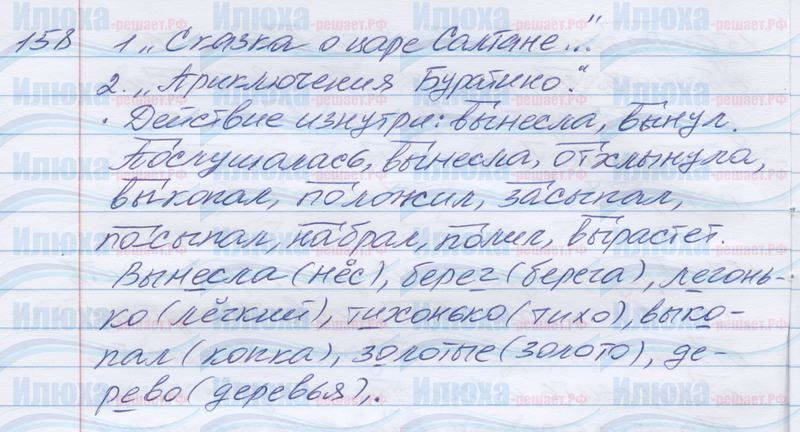 158 1. „Сказка о царе Салтане..."
2. „Приключения Буратино".
• Действие изнутри: вынесла, вынул.
Послушалась, вынесла, отхлынула,
выкопал, положил, засыпал,
посыпал, набрал, полил, вырастет.
Вынесла (нёс), берег (берега), легонь-
ко (лёгкий), тихонько (тихо), выко-
пал (копка), золотые (золото), де-
рево (деревья),.